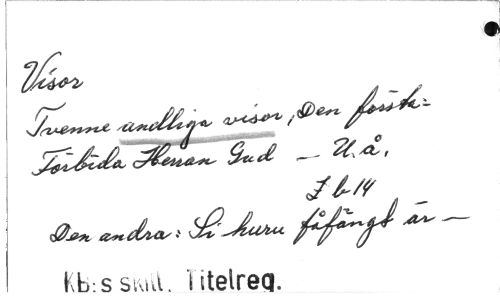 Visor
Tvenne andliga visor, Den första:
Förbida Herran Gud — U.å.
Z b 14
Den andra: Si huru fåfängt är —
KB:s skill. Titelreg.